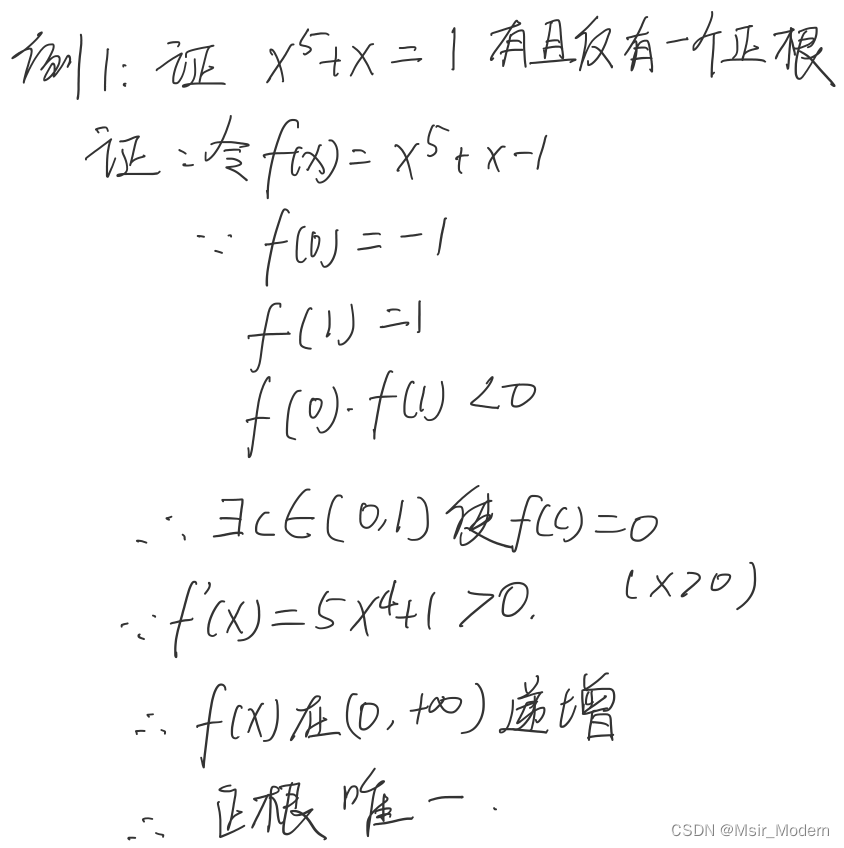 例1: 证 x⁵+x=1 有且仅有一个正根
证:令f(x)=x⁵+x-1
∵ f(0)=-1
f(1)=1
f(0)·f(1)<0
∴ ∃c∈(0,1) 使f(c)=0
∵f′(x)=5x⁴+1>0. (x>0)
∴ f(x)在(0,+∞)递增
∴ 正根唯一.
CSDN @Msir_Modern